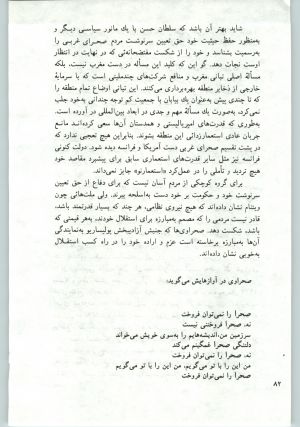 شاید بهتر آن باشد که سلطان حسن با یك مانور سیاسی دیگر و
به‌منظور حفظ حیثیت خود حق تعیین سرنوشت مردم صحرای غربی را
به‌رسمیت بشناسد و خود را از شکست مفتضحانه‌ای که در نهایت در انتظار
اوست نجات دهد. گو این که کلید این مسأله در دست مغرب نیست، بلکه
مسألهٔ اصلی تبانی مغرب و منافع شرکت‌های چندملیتی است که با سرمایهٔ
خارجی از ذخایر منطقه بهره‌برداری می‌کنند. این تبانی اوضاع تمام منطقه را
که تا چندی پیش به‌عنوان یك بیابان با جمعیت کم توجه چندانی به‌خود جلب
نمی‌کرد، به‌صورت یك مسألهٔ مهم و جدی در ابعاد بین‌المللی در آورده است.
به‌طوری که قدرت‌های امپریالیستی و همدستان آن‌ها سعی کرده‌اند مانع
جریان عادی استعمارزدائی این منطقه بشوند. بنابراین هیچ تعجبی ندارد که
در پشت تقسیم صحرای غربی دست آمریکا و فرانسه دیده شود. دولت کنونی
فرانسه نیز مثل سایر قدرت‌های استعماری سابق برای پیشبرد مقاصد خود
هیچ تردید و تأملی را در عمل‌کرد «استعمارنو» جایز نمی‌داند.
برای گروه کوچکی از مردم آسان نیست که برای دفاع از حق تعیین
سرنوشت خود و حکومت بر خود دست به‌اسلحه ببرند. ولی ملت‌هائی چون
ویتنام نشان داده‌اند که هیچ نیروی نظامی، هر چند که بسیار قدرتمند باشد،
قادر نیست مردمی را که مصمم به‌مبارزه برای استقلال خودند، به‌هر قیمتی که
باشد، شکست دهد. صحراوی‌ها که جنبش آزادیبخش پولیساریو به‌نمایندگی
آن‌ها به‌مبارزه برخاسته است عزم و اراده خود را در راه کسب استقلال
به‌خوبی نشان داده‌اند.
صحراوی در آوازهایش می‌گوید:
صحرا را نمی‌توان فروخت
نه. صحرا فروختنی نیست
سرزمین من، اندیشه‌هایم را به‌سوی خویش می‌خواند
دلتنگی صحرا غمگینم می‌کند
صحرا را نمی‌توان فروخت
من این را با تو می‌گویم، من این را با تو می‌گویم
نه صحرا را نمی‌توان فروخت
۸۲